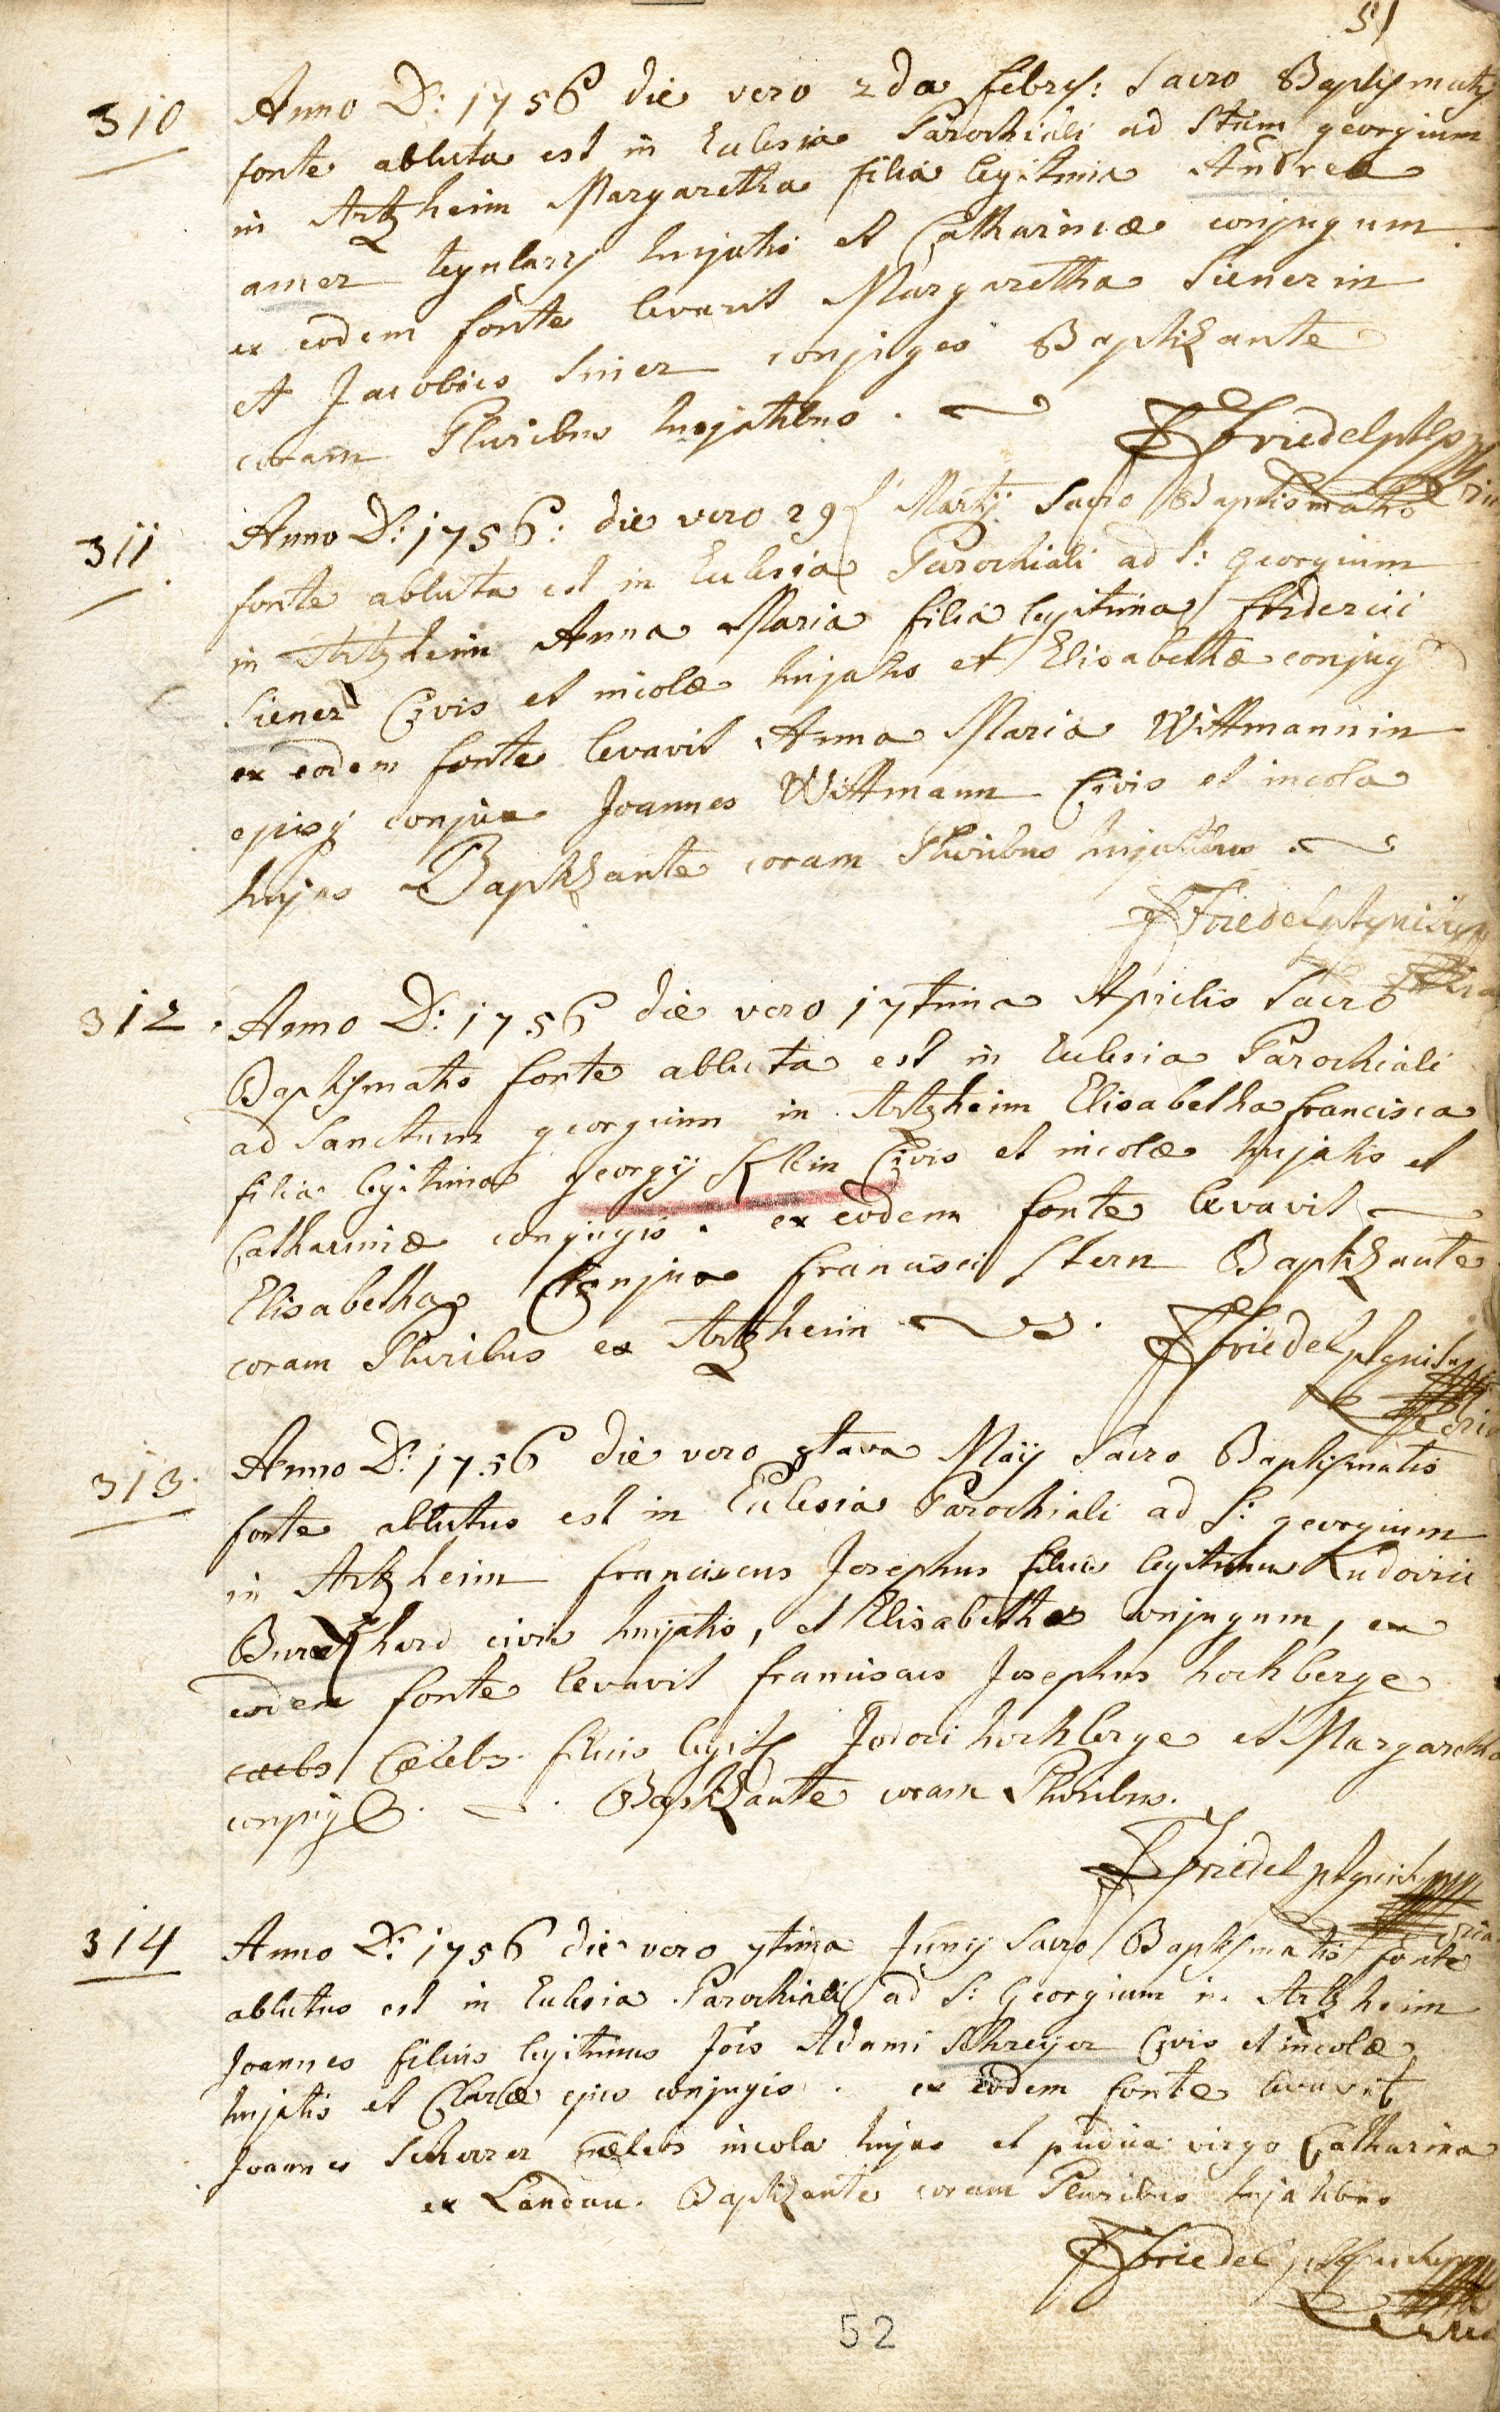 51
310
Anno D: 1756 die vero 2da febry: Sacro Baptismatis
fonte abluta est in Eclesia Parochiali ad Stum georgium
in Artzheim Margaretha filia legitima Andrea
amer hujatis et Catharinæ conjugum
ex eodem fonte levavit Margaretha Sienerin
et Jacobus Siner conjuges Baptizante
coram Pluribus hujatibus.
Friedel
311
Anno D: 1756: die vero 29 Martij Sacro Baptismatis
fonte abluta est in Eclesia Parochiali ad S: georgium
in Artzheim Anna Maria filia legitima friderici
Siener Civis et incolæ hujatis et Elisabethæ conjug
ex eodem fonte levavit Anna Maria Wittmannin
conjux Joannes Wittmann Civis et incola
hujas Baptizante coram Pluribus hujatibus.
Friedel
312
Anno D: 1756 die vero 17tima Aprilis Sacro
Baptismatis fonte abluta est in Eclesia Parochiali
ad Sanctum georgium in Artzheim Elisabetha francisca
filia legitima georgij Klein Civis et incolæ hujatis et
Catharinæ conjugis. ex eodem fonte levavit
Elisabetha Conjux francisci Stern Baptizante
coram Pluribus ex Artzheim.
Friedel
313.
Anno D: 1756 die vero 8tava Maij Sacro Baptismatis
fonte ablutus est in Eclesia Parochiali ad S: georgium
in Artzheim franciscus Josephus filius legitimus Ludovici
Burckhard civis hujatis, et Elisabetha conjugum, ex
eodem fonte levavit franciscus Josephus hochberge
Cælebs filius legit Jodoci hochberge et Margaretha
conjug. Baptizante coram Pluribus.
Friedel
314
Anno D: 1756 die vero 7tima Junij Sacro Baptismatis fonte
ablutus est in Eclesia Parochiali ad S: Georgium in Artzheim
Joannes filius legitimus Jois Adami Schreyer Civis et incolæ
hujatis et Claræ ejus conjugis. ex eodem fonte levavit
Joannes Scherrer Cælebs incola hujas et pudica virgo Catharina
ex Landau. Baptizante coram Pluribus hujatibus
Friedel
52